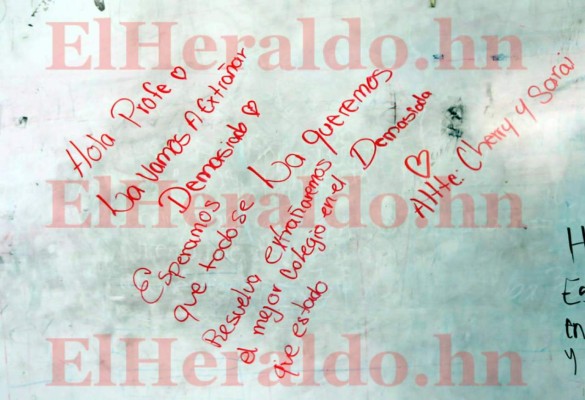 ElHeraldo.hn
Hola Profe ♡
La Vamos A Extrañar
Demasiado ♡
Esperamos
que todo se
Resuelva, extrañaremos
el mejor Colegio en el
que estado
La queremos
Demasiada
♡
Attte: Cherry y Sarai
ElHeraldo.hn
H
en
y
ElHeraldo.hn